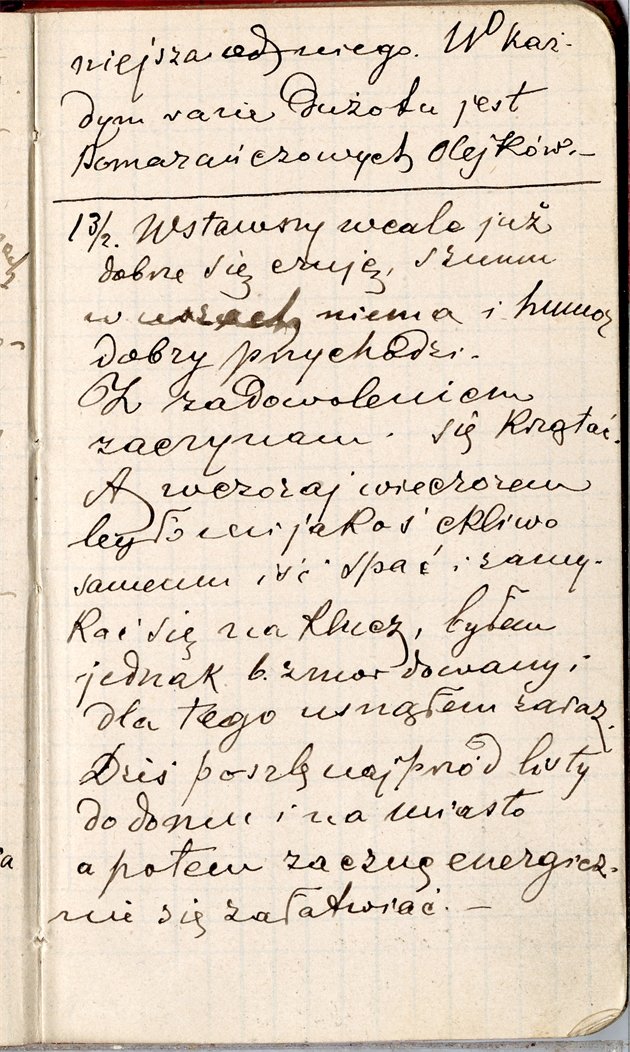 niejsza od niego. W każ-
dym razie Dużo tu jest
Pomarańczowych Olejków.—
13/2. Wstawszy wcale już
dobrze się czuję, szumu
w uszach niema i humor
dobry przychodzi.
Z zadowoleniem
zaczynam się krzątać.
A wczoraj wieczorem
było mi jakoś ckliwo
samemu iść spać i zamy-
kać się na klucz, byłem
jednak b. zmordowany i
dla tego usnąłem zaraz.
Dziś poszlę najprzód listy
do domu i na miasto
a potem zacznę energicz-
nie się załatwiać.—